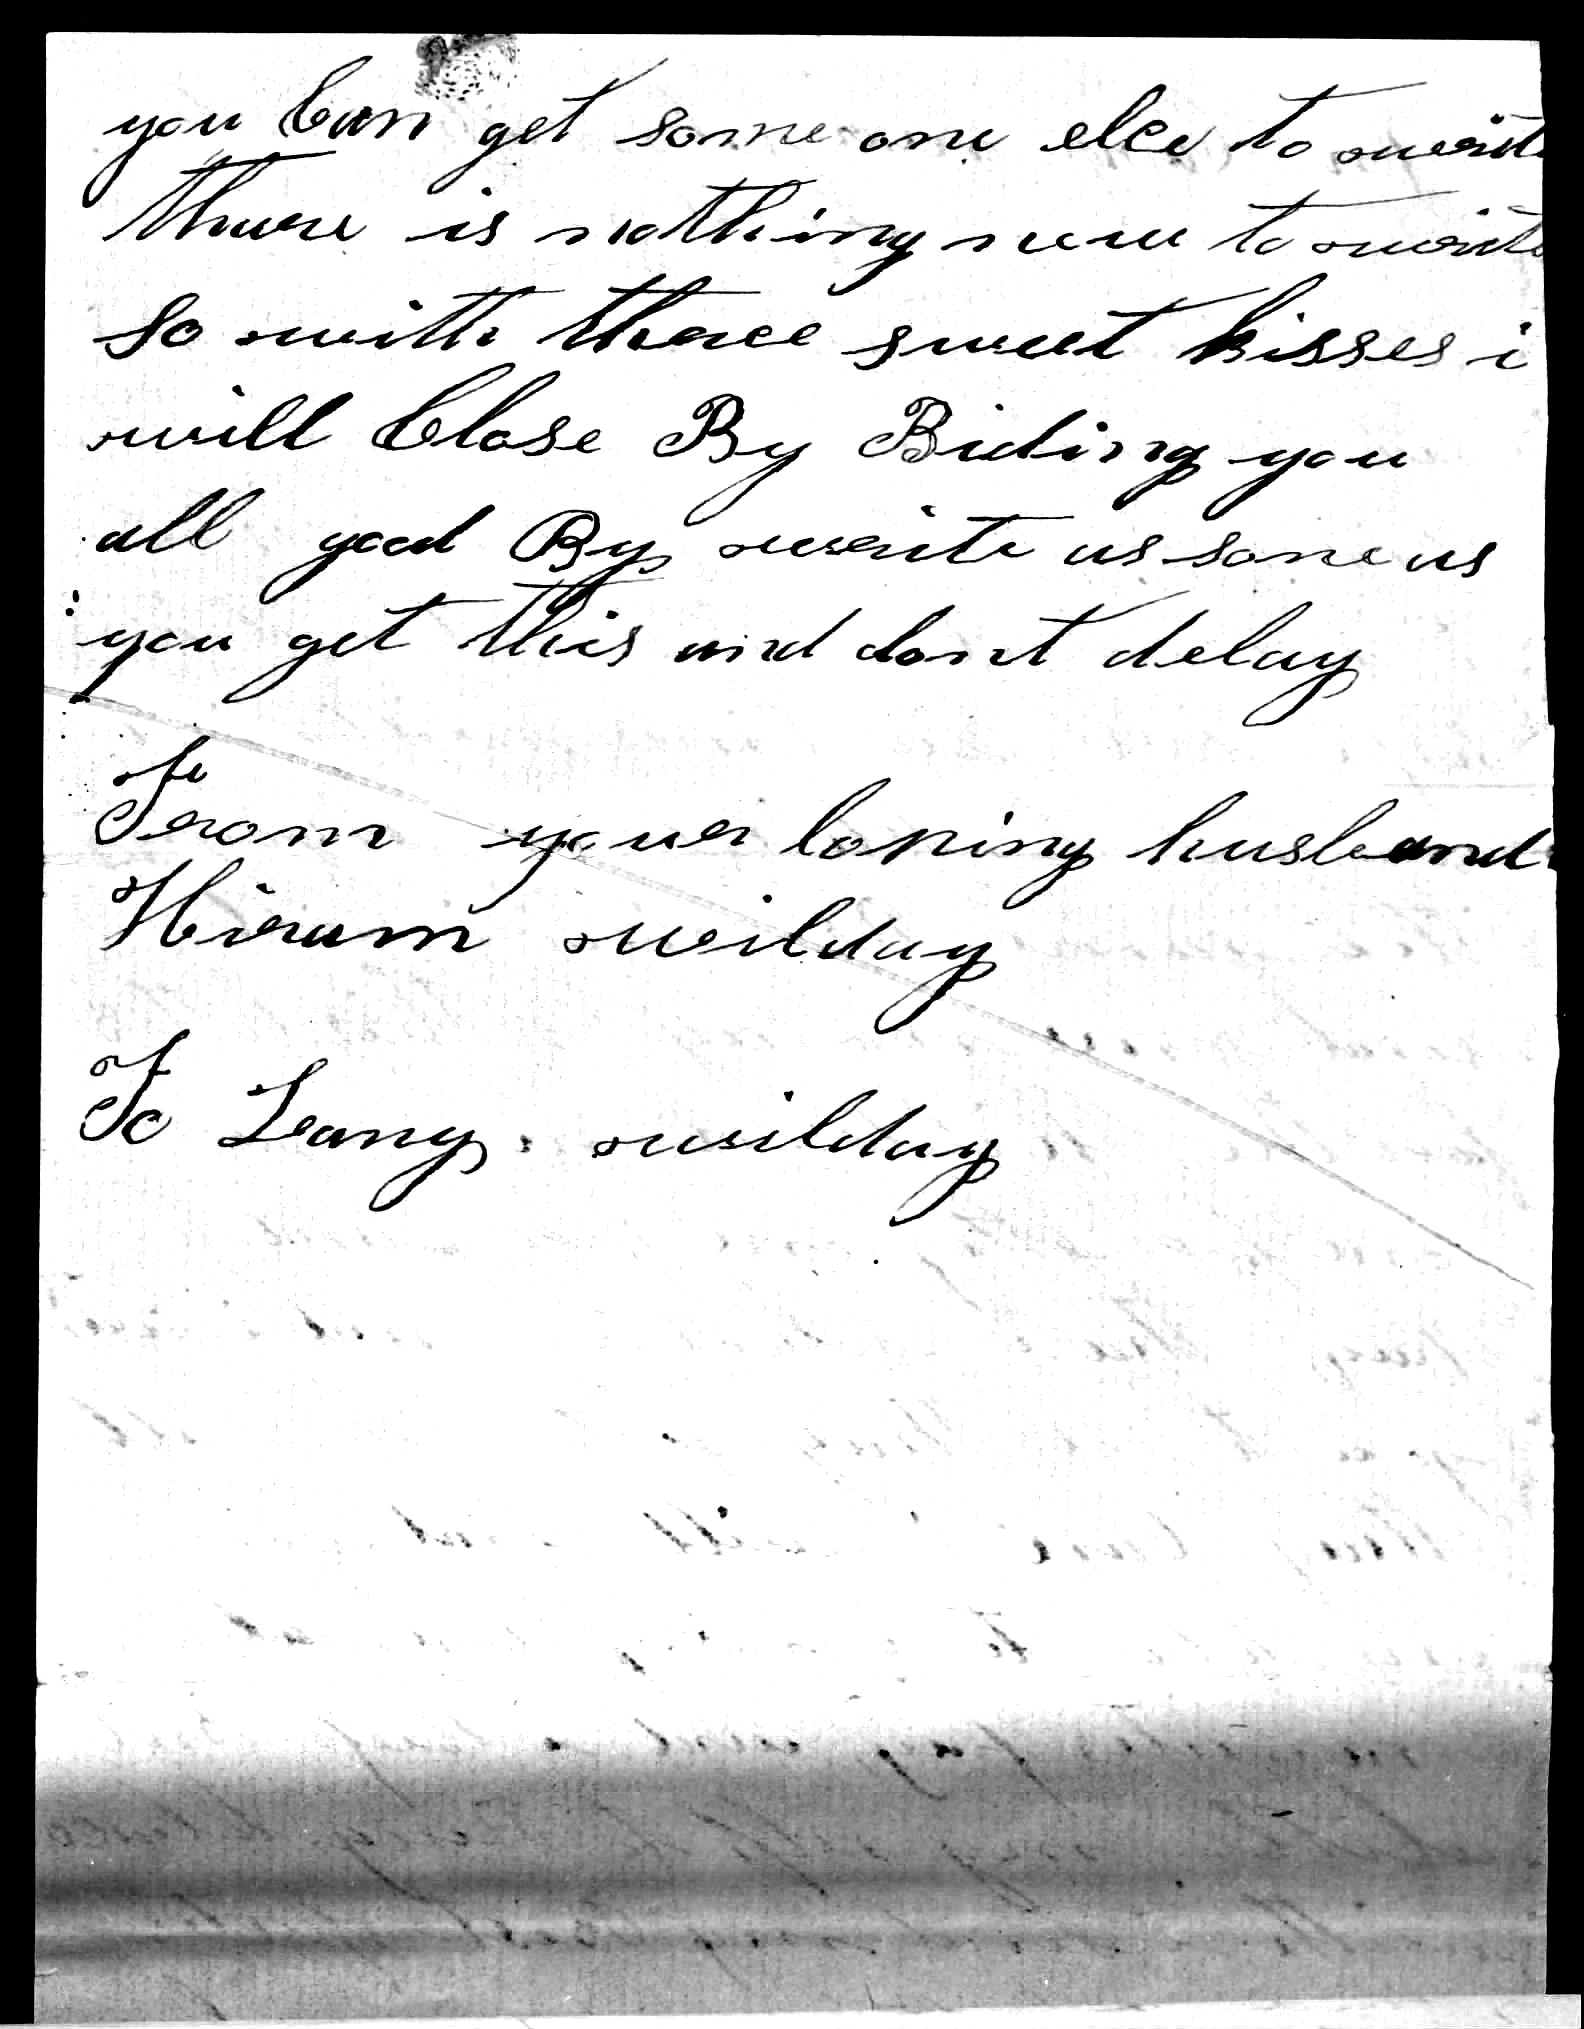 you Can get some one elce to write
there is nothing new to write
so with three sweet kisses i
will Close By Biding you
all good By write as sone as
you get this and dont delay
From your loving husband
Hiram wilday
To Lany wilday